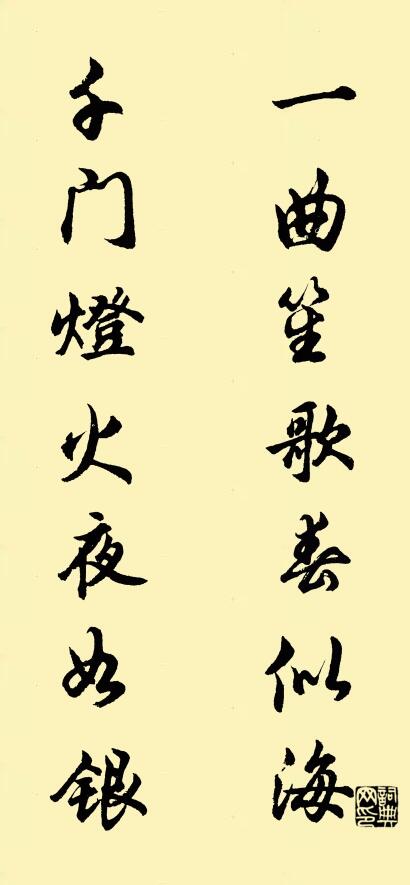 一曲笙歌春似海
千门燈火夜如銀
詞典网印